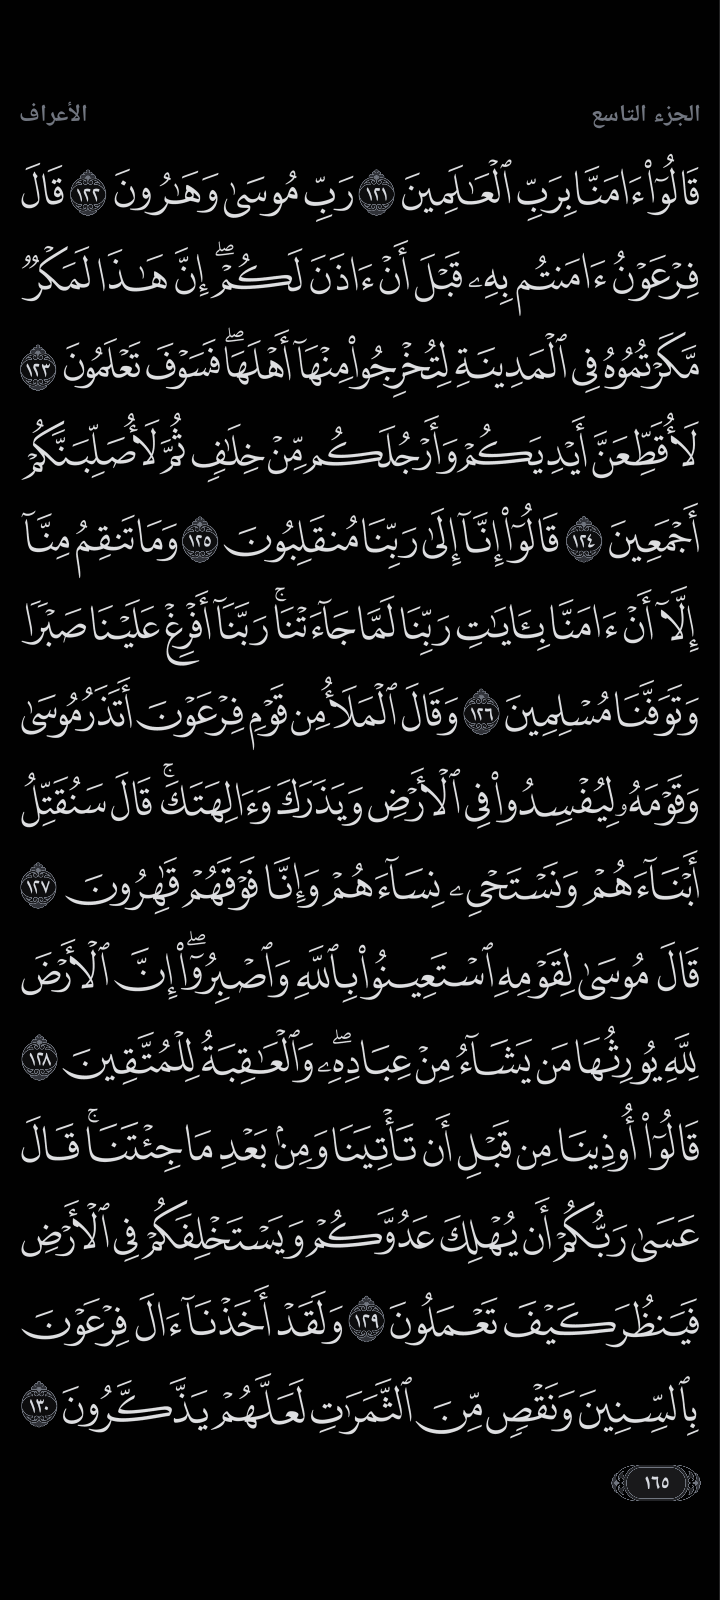 الجزء التاسع
الأعراف
قَالُوٓا۟ ءَامَنَّا بِرَبِّ ٱلْعَـٰلَمِينَ ١٢١ رَبِّ مُوسَىٰ وَهَـٰرُونَ ١٢٢ قَالَ
فِرْعَوْنُ ءَامَنتُم بِهِۦ قَبْلَ أَنْ ءَاذَنَ لَكُمْ ۖ إِنَّ هَـٰذَا لَمَكْرٌ
مَّكَرْتُمُوهُ فِى ٱلْمَدِينَةِ لِتُخْرِجُوا۟ مِنْهَآ أَهْلَهَا ۖ فَسَوْفَ تَعْلَمُونَ ١٢٣
لَأُقَطِّعَنَّ أَيْدِيَكُمْ وَأَرْجُلَكُم مِّنْ خِلَـٰفٍ ثُمَّ لَأُصَلِّبَنَّكُمْ
أَجْمَعِينَ ١٢٤ قَالُوٓا۟ إِنَّآ إِلَىٰ رَبِّنَا مُنقَلِبُونَ ١٢٥ وَمَا تَنقِمُ مِنَّآ
إِلَّآ أَنْ ءَامَنَّا بِـَٔايَـٰتِ رَبِّنَا لَمَّا جَآءَتْنَا ۚ رَبَّنَآ أَفْرِغْ عَلَيْنَا صَبْرًا
وَتَوَفَّنَا مُسْلِمِينَ ١٢٦ وَقَالَ ٱلْمَلَأُ مِن قَوْمِ فِرْعَوْنَ أَتَذَرُ مُوسَىٰ
وَقَوْمَهُۥ لِيُفْسِدُوا۟ فِى ٱلْأَرْضِ وَيَذَرَكَ وَءَالِهَتَكَ ۚ قَالَ سَنُقَتِّلُ
أَبْنَآءَهُمْ وَنَسْتَحْىِۦ نِسَآءَهُمْ وَإِنَّا فَوْقَهُمْ قَـٰهِرُونَ ١٢٧
قَالَ مُوسَىٰ لِقَوْمِهِ ٱسْتَعِينُوا۟ بِٱللَّهِ وَٱصْبِرُوٓا۟ ۖ إِنَّ ٱلْأَرْضَ
لِلَّهِ يُورِثُهَا مَن يَشَآءُ مِنْ عِبَادِهِۦ ۖ وَٱلْعَـٰقِبَةُ لِلْمُتَّقِينَ ١٢٨
قَالُوٓا۟ أُوذِينَا مِن قَبْلِ أَن تَأْتِيَنَا وَمِنۢ بَعْدِ مَا جِئْتَنَا ۚ قَالَ
عَسَىٰ رَبُّكُمْ أَن يُهْلِكَ عَدُوَّكُمْ وَيَسْتَخْلِفَكُمْ فِى ٱلْأَرْضِ
فَيَنظُرَ كَيْفَ تَعْمَلُونَ ١٢٩ وَلَقَدْ أَخَذْنَآ ءَالَ فِرْعَوْنَ
بِٱلسِّنِينَ وَنَقْصٍ مِّنَ ٱلثَّمَرَٰتِ لَعَلَّهُمْ يَذَّكَّرُونَ ١٣٠
١٦٥